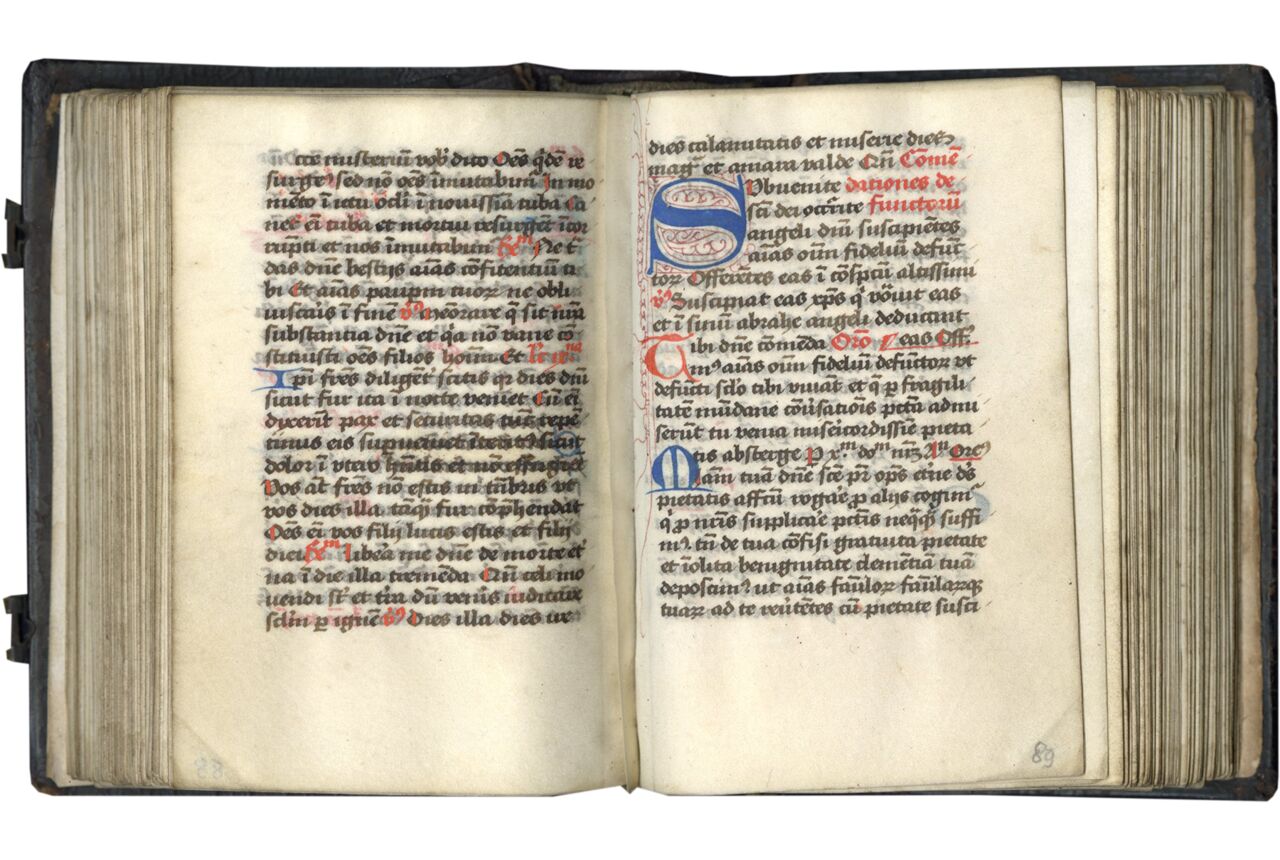 Ecce misteriū vob' dico Oēs q̇dē re
surgē' sed nō oēs īmutabim' In mo
mēto ī ictu oc̄li ī nouissīa tuba Ca
net eī tuba et mortui resurgēt īcor
rupti et nos īmutabim' Re᷒m Ne t̄
das dn̄e bestijs aīas cōfitentiū ti
bi Et aīas paupꝝ tuoꝝ ne obli
uiscaris ī fine v᷒ Meōrare q̄ sit mīa
substantia dn̄e et q̇a nō vane cō
stituisti oēs filios hoīm Et Lc̄ ixna
Ipi frēs diligēt' scitis qr dies dn̄i
sicut fur ita ī nocte veniet Cū eī
dixerīt pax et securitas tūc repē
tinus eis supueniet īterit᷒ sicut
dolor ī vtero hn̄tis et nō effugiēt
Vos at̄ frēs nō estis in tn̄bris vt
vos dies illa tāq̄ fur cōp̄hendat
Oēs eī vos filij lucis estis et filij
diei Re᷒m Libēa me dn̄e de morte et'
na ī die illa tremēda Qn̄ celi mo
uendi st̄ et t̄ra dū venīs iudicare
sclm̄ ꝑ ignē v᷒ Dies illa dies ire
dies calamitatis et miserie dies
mag᷒ et amara valde Qn̄ Cōmē
Subuenite dationes de
scī dei occr̄rite functorū
angeli dn̄i suscipiētes
aīas oīm fideliū defūc
toꝝ Offerētes eas ī cōspcū altissimi
v᷒ Suscipiat eas xp̄s q̇ vōuit eas
et ī sinū abrahe angeli deducant
Tibi dn̄e cōmēda Orō eas Off.
m᷒ aīas oīm fideliū defūctoꝝ vt
defūcti sc̄lo tibi viuāt et q̄ ꝑ fragili
tatē mūdane cōu̇satiōis pctā admi
serūt tu venia misēicordissīe pieta
tis absterge P xm dom nr̄m Am Ore᷒
Miām tuā dn̄e scē pr̄ opr̄s etne ds̄
pietatis affcū rogāe ꝓ alijs cogim᷒
q̇ ꝓ nr̄is supplicāe pctīs neq̄q̄ suffi
m᷒ tn̄ de tua cōfisi gratuita pietate
et īolita benignitate clemētiā tuā
deposcim᷒ ut aīas famuloꝝ famulaꝝqꝫ
tuaꝝ ad te reu̇tētes cū pietate susci
88
89